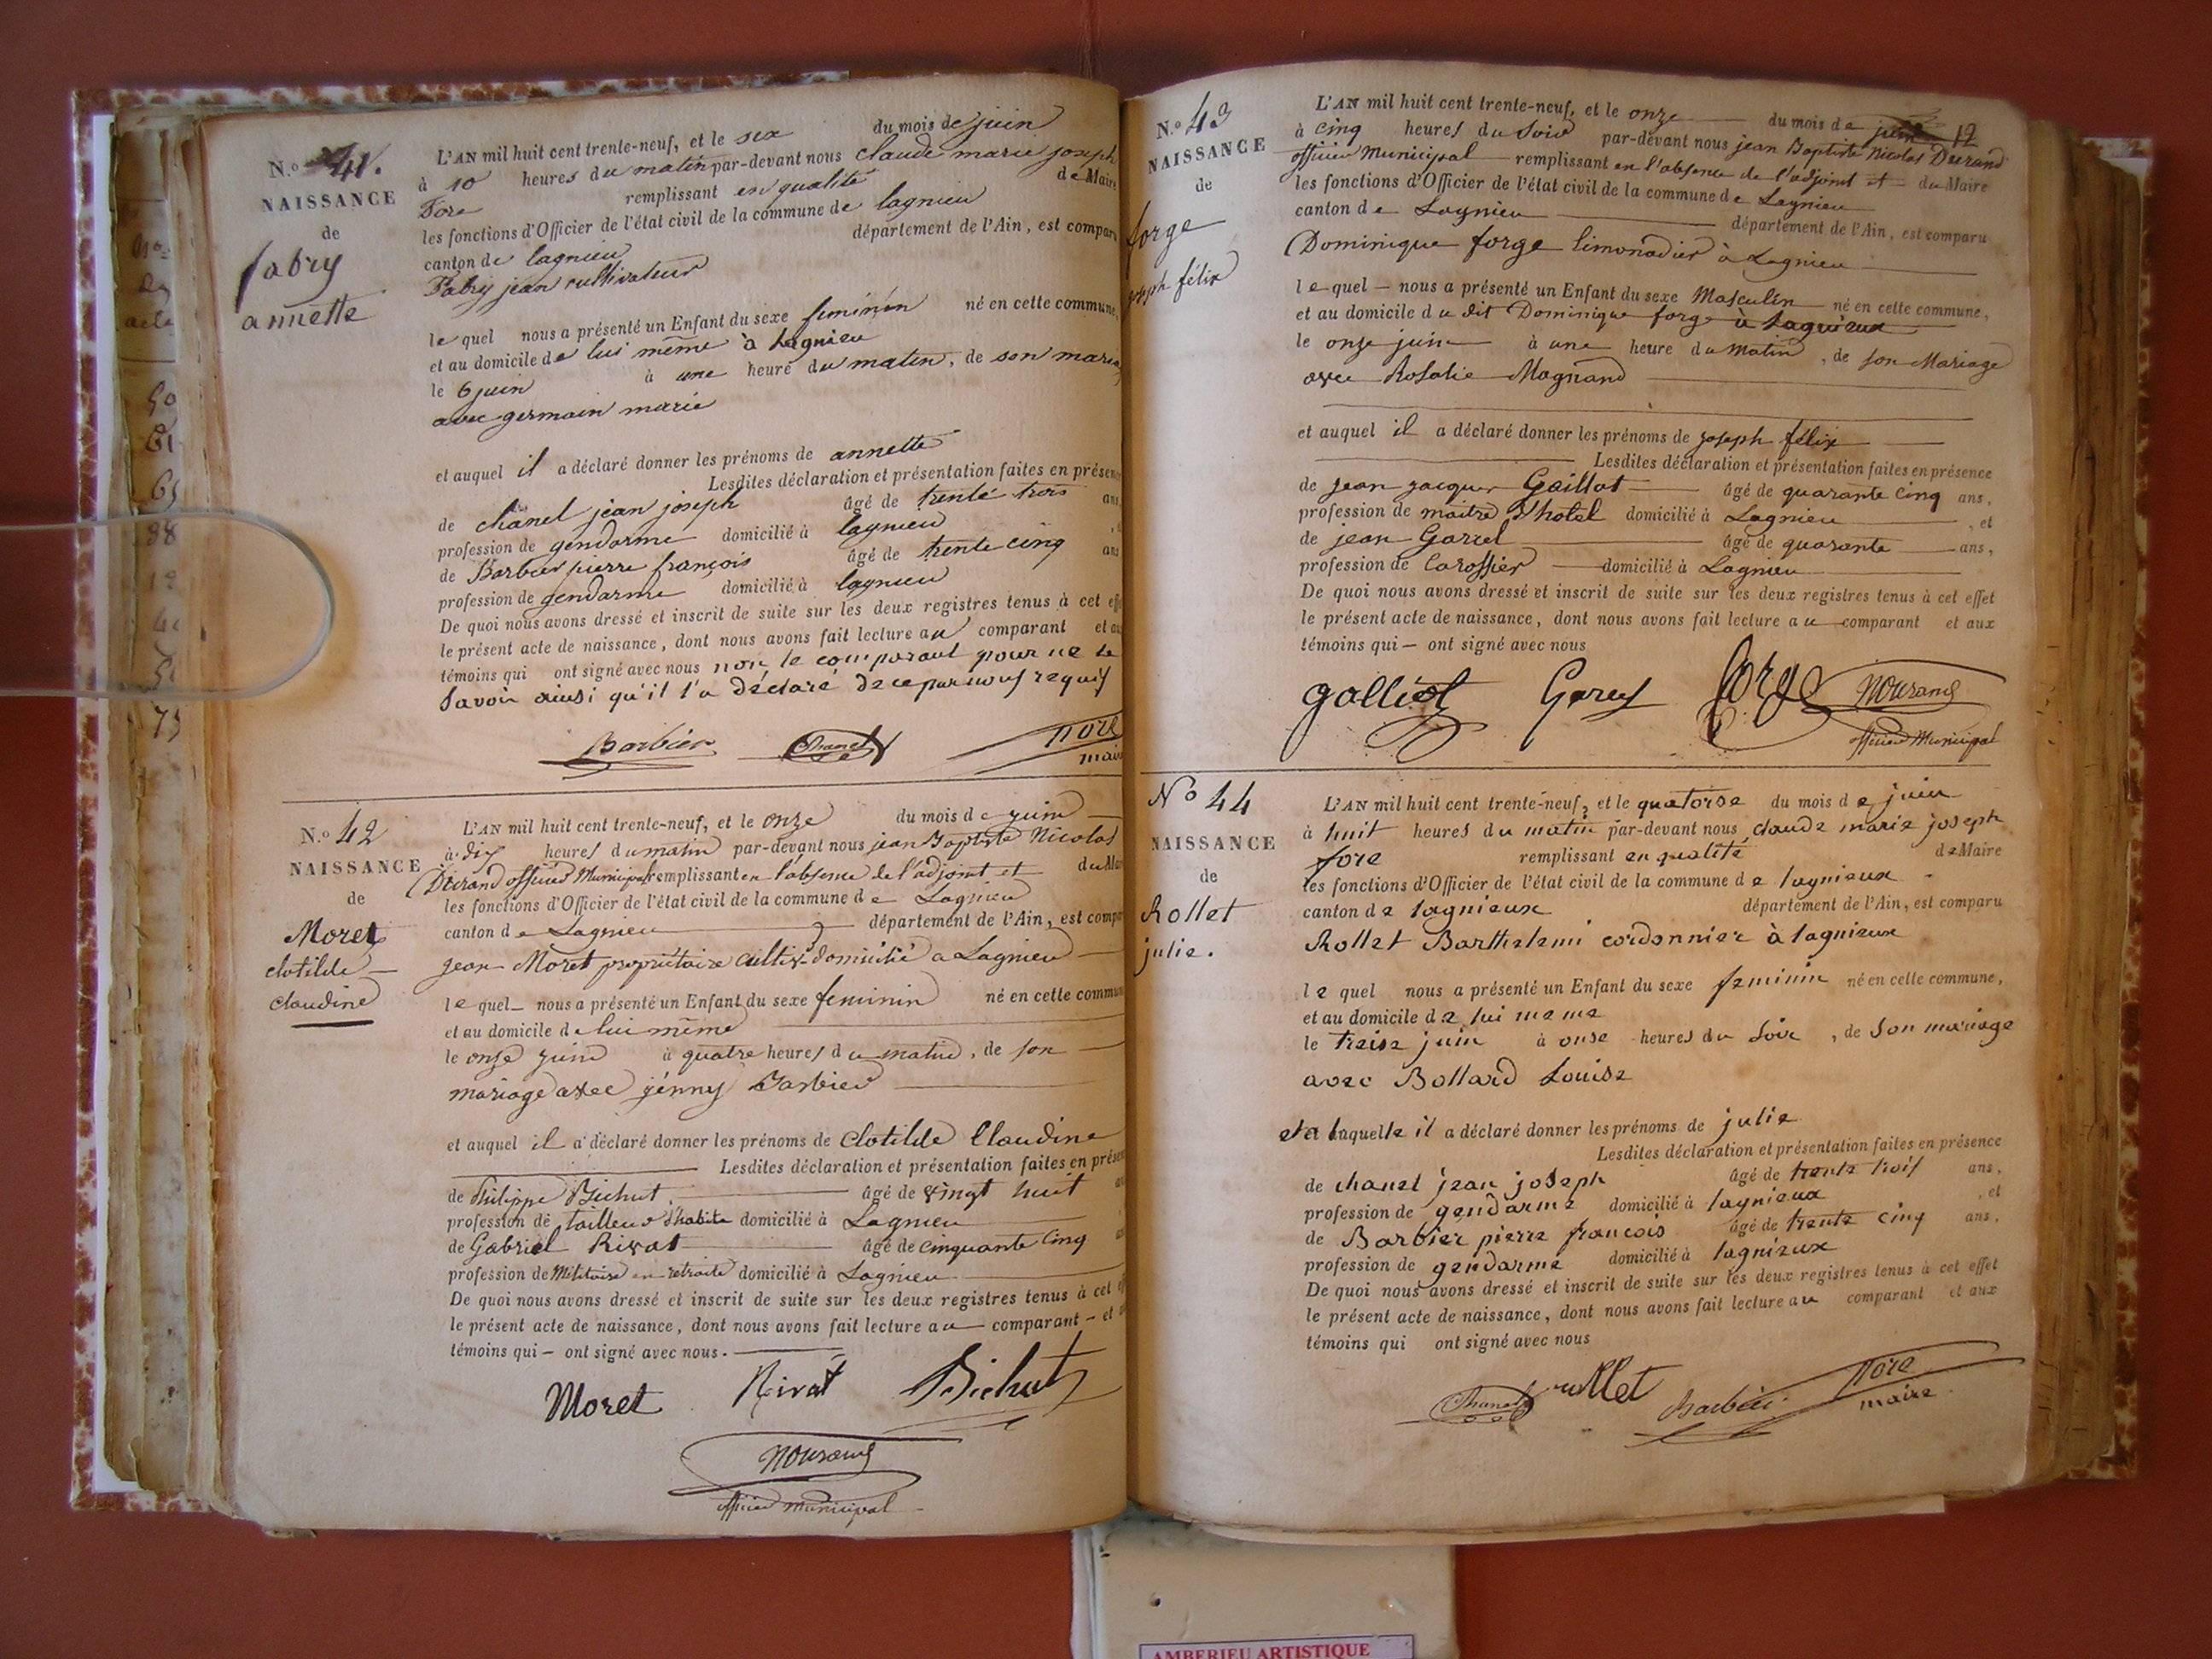 N.o 41.
NAISSANCE
de
fabry
annette
L'AN mil huit cent trente-neuf, et le six du mois de juin
à 10 heures du matin par-devant nous claude marie joseph
Fore remplissant en qualité de Maire
les fonctions d'Officier de l'état civil de la commune de lagnieu
canton de lagnieu département de l'Ain, est comparu
Fabry jean cultivateur
le quel nous a présenté un Enfant du sexe feminin né en cette commune,
et au domicile de lui même à Lagnieu
le 6 juin à une heure du matin, de son mariage
avec germain marie
et auquel il a déclaré donner les prénoms de annette
Lesdites déclaration et présentation faites en présence
de chanel jean joseph âgé de trente trois ans
profession de gendarme domicilié à lagnieu
de Barbier pierre françois âgé de trente cinq ans
profession de gendarme domicilié à lagnieu
De quoi nous avons dressé et inscrit de suite sur les deux registres tenus à cet effet
le présent acte de naissance, dont nous avons fait lecture au comparant et aux
témoins qui ont signé avec nous non le comparant pour ne le
Savoir ainsi qu'il l'a déclaré de ce par nous requis
Barbier Chanel fore
maire
N.o 42
NAISSANCE
de
Moret
clotilde
claudine
L'AN mil huit cent trente-neuf, et le onze du mois de juin
à dix heures du matin par-devant nous jean Baptiste Nicolas
Durand officier Municipal remplissant en l'absence de l'adjoint et du Maire
les fonctions d'Officier de l'état civil de la commune de Lagnieu
canton de Lagnieu département de l'Ain, est comparu
jean Moret propriétaire cultiv. domicilié a Lagnieu
le quel nous a présenté un Enfant du sexe feminin né en cette commune
et au domicile de lui même
le onze juin à quatre heures du matin, de son
mariage avec jénny Barbier
et auquel il a déclaré donner les prénoms de Clotilde Claudine
Lesdites déclaration et présentation faites en présence
de Philippe Bichut. âgé de vingt huit
profession de tailleur d'habits domicilié à Lagnieu
de Gabriel Rivat âgé de cinquante cinq
profession de Militaire en retraite domicilié à Lagnieu
De quoi nous avons dressé et inscrit de suite sur les deux registres tenus à cet effet
le présent acte de naissance, dont nous avons fait lecture au comparant - et
témoins qui - ont signé avec nous.
Moret Rivat Bichut
NDurand
officier municipal
N.o 43
NAISSANCE
de
forge
joseph félix
L'AN mil huit cent trente-neuf, et le onze du mois de juin 12
à cinq heures du Soir par-devant nous jean Baptiste Nicolas Durand
officier Municipal remplissant en l'absence de l'adjoint et du Maire
les fonctions d'Officier de l'état civil de la commune de Lagnieu
canton de Lagnieu département de l'Ain, est comparu
Dominique forge limonadier à Lagnieu
le quel - nous a présenté un Enfant du sexe Masculin né en cette commune,
et au domicile du dit Dominique forge à Lagnieux
le onze juin à une heure du Matin, de son Mariage
avec Rosalie Magnand
et auquel il a déclaré donner les prénoms de joseph félix
Lesdites déclaration et présentation faites en présence
de jean jacques Gaillot âgé de quarante cinq ans,
profession de maitre d'hotel domicilié à Lagnieu, et
de jean Garrel âgé de quarante ans,
profession de Carossier domicilié à Lagnieu
De quoi nous avons dressé et inscrit de suite sur les deux registres tenus à cet effet
le présent acte de naissance, dont nous avons fait lecture au comparant et aux
témoins qui - ont signé avec nous
galliot forge NDurand
officier Municipal
No 44
NAISSANCE
de
Rollet
julie.
L'AN mil huit cent trente-neuf, et le quatorse du mois de juin
à huit heures du matin par-devant nous claude marie joseph
fore remplissant en qualité de Maire
les fonctions d'Officier de l'état civil de la commune de lagnieux
canton de lagnieux département de l'Ain, est comparu
Rollet Barthelemi cordonnier à lagnieux
le quel nous a présenté un Enfant du sexe feminin né en cette commune,
et au domicile de lui meme
le treise juin à onse heures du Soir, de Son mariage
avec Bollard Louise
et a laquelle il a déclaré donner les prénoms de julie
Lesdites déclaration et présentation faites en présence
de chanel jean joseph âgé de trente trois ans,
profession de gendarme domicilié à lagnieux, et
de Barbier pierre francois âgé de trente cinq ans,
profession de gendarme domicilié à lagnieux
De quoi nous avons dressé et inscrit de suite sur les deux registres tenus à cet effet
le présent acte de naissance, dont nous avons fait lecture au comparant et aux
témoins qui ont signé avec nous
Chanel rollet Barbier fore
maire
AMBERIEU ARTISTIQUE